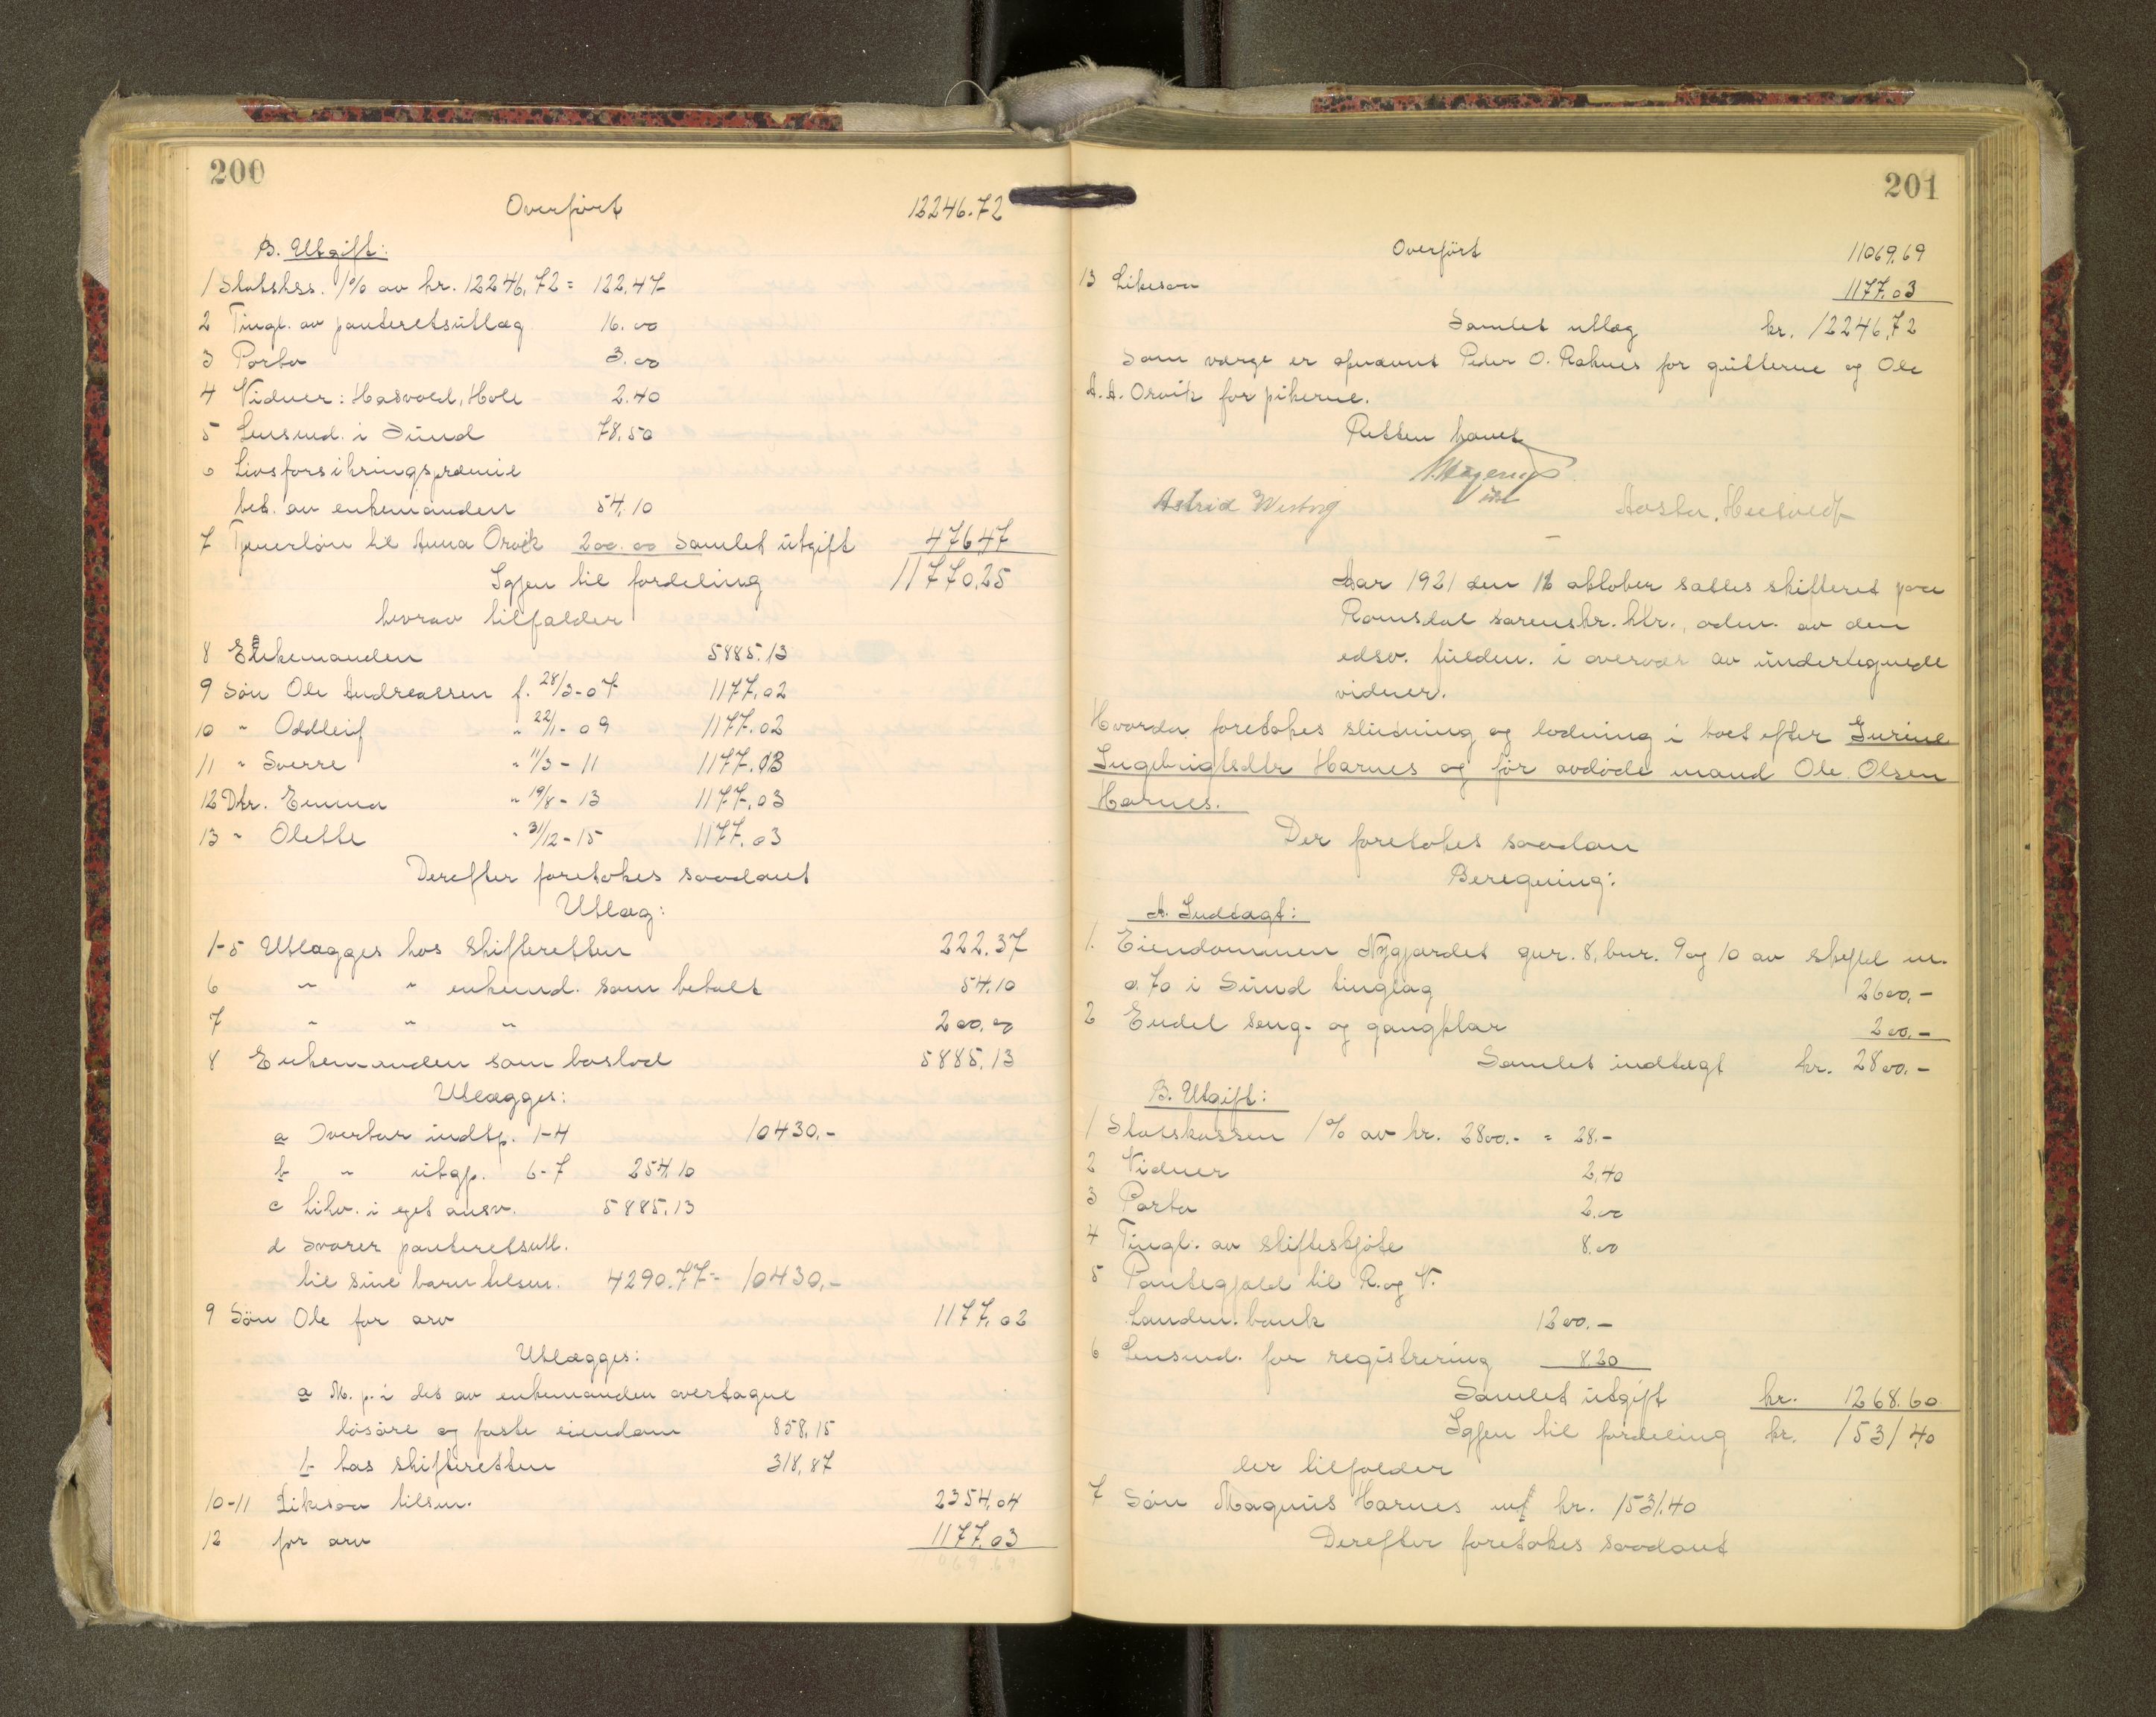 200
Overført 12246.72
B. Utgift:
1 Statskss. 1% av kr. 12246,72 = 122,47
2 Tingl. av panteretsutlæg 16.00
3 Porto 3.00
4 Vidner: Hasvold, Hole 2.40
5 Lensmd. i Sund 78,50
6 Livsforsikringspræmie
bet. av enkemanden 54,10
7 Tjenerløn til Anna Orvik 200.00 Samlet utgift 476,47
Igjen til fordeling 11770,25
hvorav tilfalder
8 Enkemanden 5885.13
9 Søn Ole Andreassen f. 28/3-07 1177,02
10 " Oddleif " 22/1-09 1177.02
11 " Sverre " 11/3-11 1177.03
12 Dtr. Emma " 19/8-13 1177,03
13 " Olette " 31/12-15 1177,03
Derefter foretokes saadant
Utlæg:
1-5 Utlægges hos skifteretten 222.37
6 " " enkemd. som betalt 54,10
7 " " " 200,00
8 Enkemanden som boslod 5885,13
Utlægges:
a Overtar indtp. 1-4 10430.-
b " utgp. 6-7 254,10
c Lilv. i eget ansv. 5885,13
d Svarer panteretsutl.
til sine barn tilsm. 4290.77 = 10430,-
9 Søn Ole for arv 1177,02
Utlægges:
a M. p. i det av enkemanden overtagne
løsøre og faste eiendom 858,15
b hos skifteretten 318,87
10-11 Likesaa tilsm. 2354,04
12 for arv 1177,03
069.69
201
Overført 11069,69
13 Likesaa 1177,03
Samlet utlæg kr. 12246,72
Som værge er opnævnt Peder O. Raknes for gutterne og Ole
A. A. Orvik for pikerne.
Retten hævet
Astrid
Aar 1921 den 12 oktober sattes skifteret paa
Romsdal sorenskr. ktr., adm. av den
edsv. fuldm. i overvær av undertegnede
vidner.
Hvorda foretokes slutning og lodning i boet efter Gurine
Ingebrigtsdtr Harnes og før avdøde mand Ole Olsen
Harnes.
Der foretokes saadan
Beregning:
A. Indtægt:
1. Eiendommen Nygjerdet gnr. 8, bnr. 9 og 10 av skyld m.
0.70 i Sund tinglag 2600,-
2 Endel seng- og gangklær 200,-
Samlet indtægt kr. 2800,-
B. Utgift:
1 Statskassen 1% av kr. 2800.- = 28.-
2 Vidner 2,40
3 Porto 2.00
4 Tingl. av skifteskjøte 8.00
5 Pantegjæld til R. og N.
Landm. bank 1200.-
6 Lensmd. for registrering 8.20
Samlet utgift kr. 1268.60
Igjen til fordeling kr. 1531,40
der tilfalder
7 Søn Magnus Harnes mf kr. 1531.40
Derefter foretokes saadant